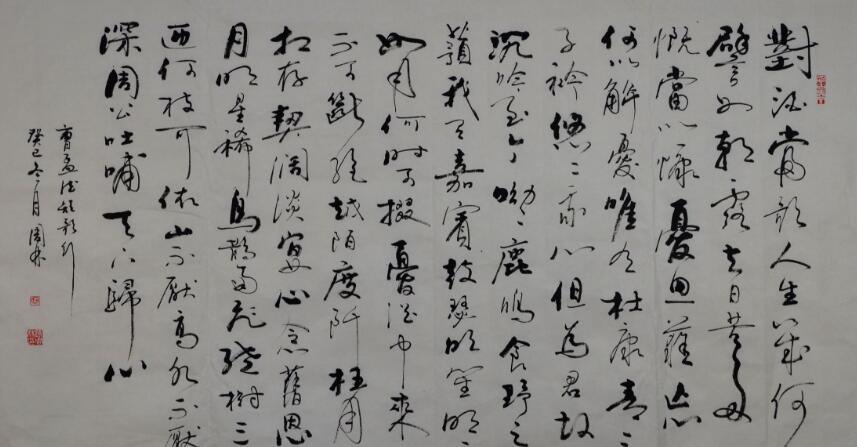 對酒當歌人生幾何
譬如朝露去日苦多
慨當以慷憂思難忘
何以解憂唯有杜康青々
子衿悠々我心但為君故
沉吟至今呦々鹿鳴食野之
蘋我有嘉賓鼓瑟吹笙明々
如月何時可掇憂從中來
不可斷絕越陌度阡枉用
相存契闊談宴心念舊恩
月明星稀烏鵲南飛繞樹三
匝何枝可依山不厭高水不厭
深周公吐哺天下歸心
曹孟德短歌行
癸巳冬月周